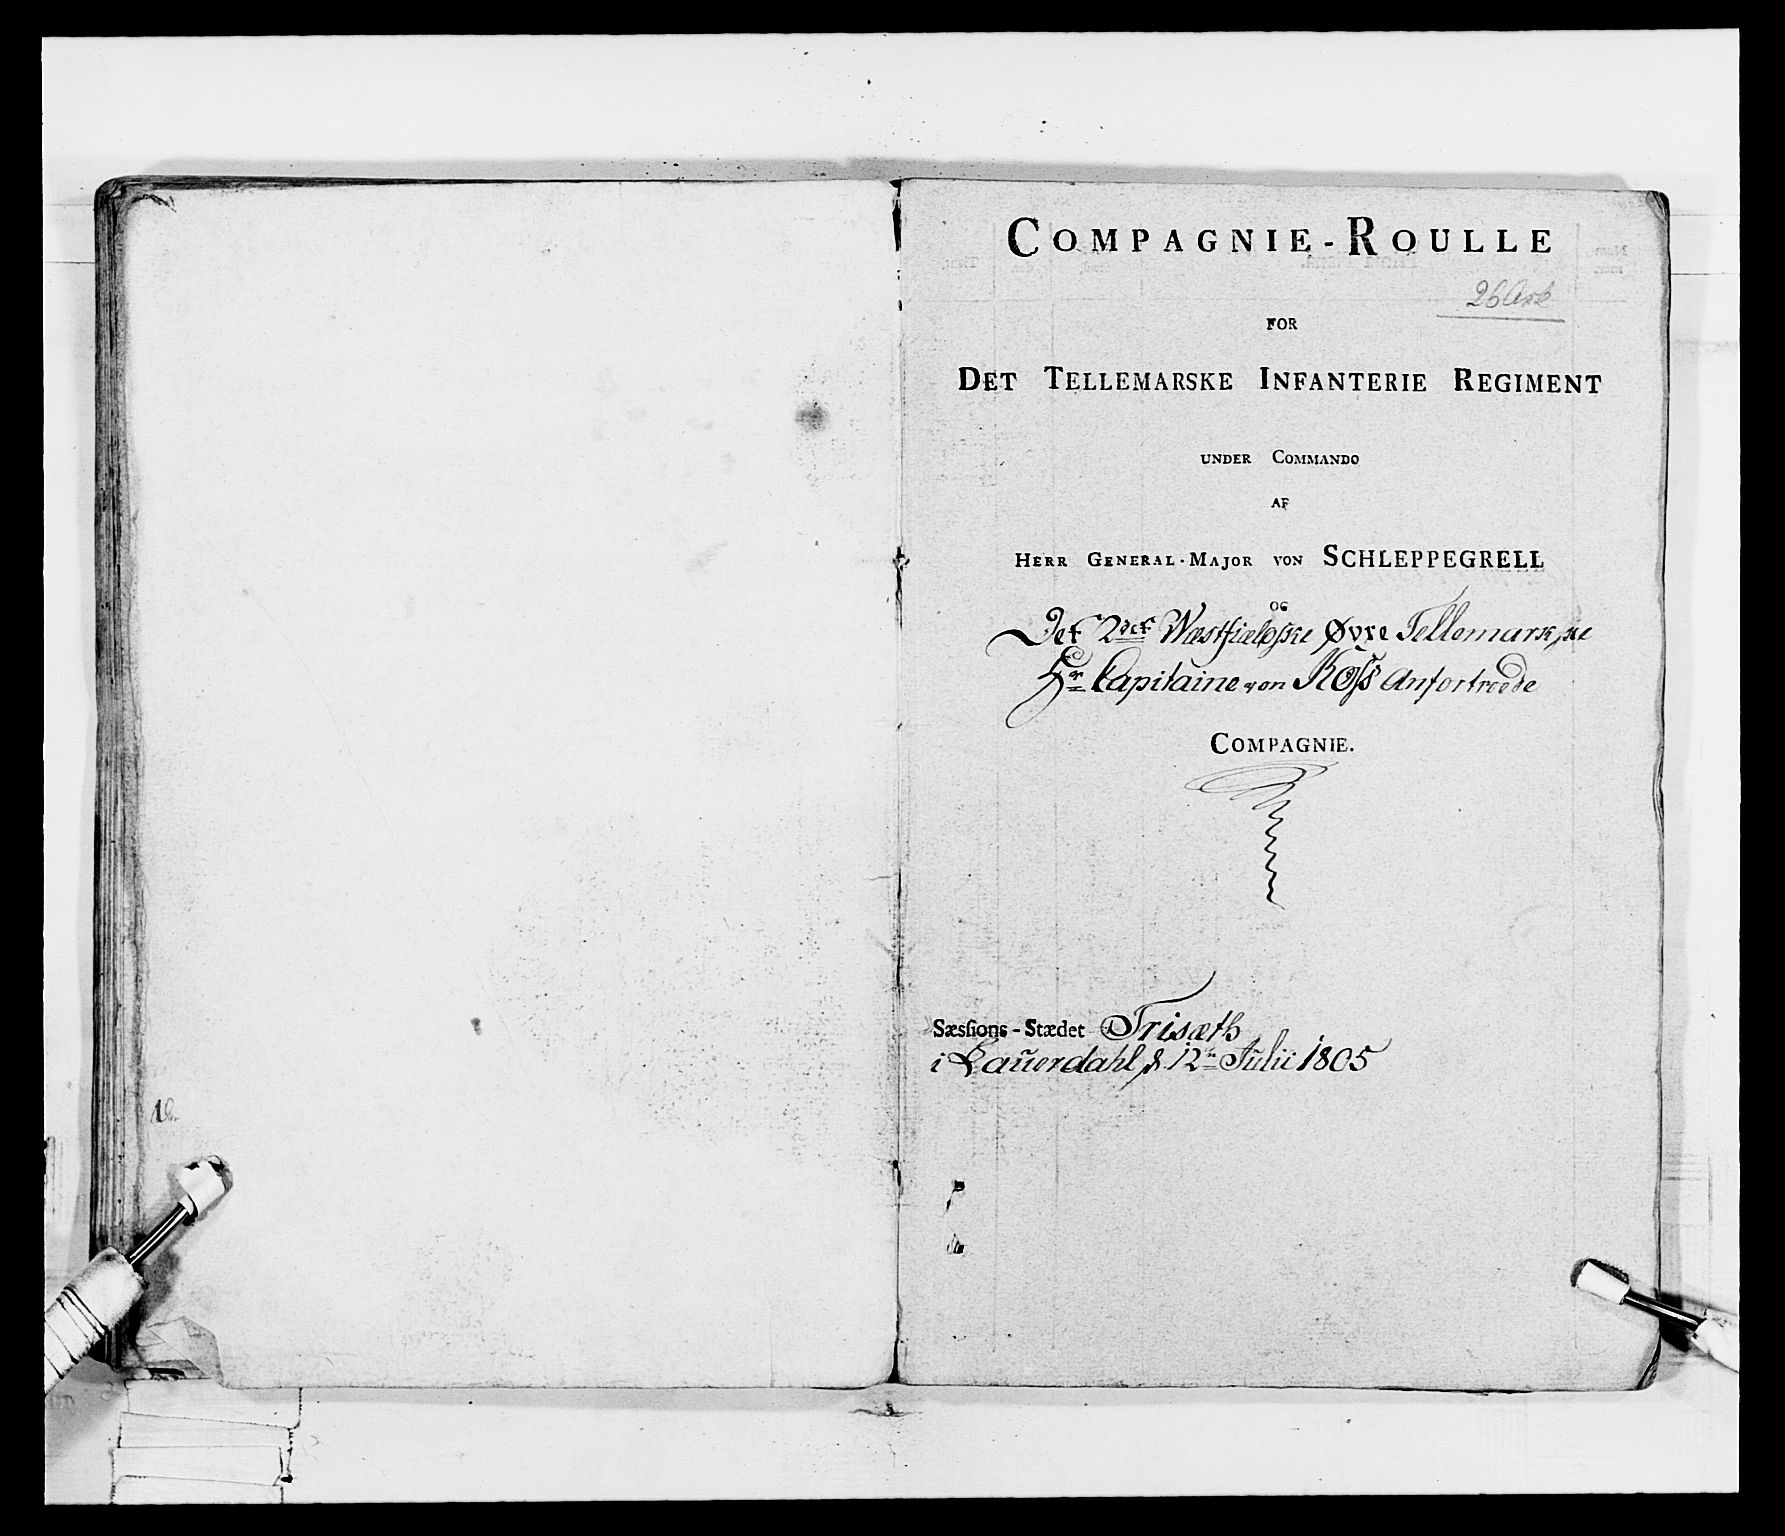 COMPAGNIE-ROULLE
26 Ark
FOR
DET TELLEMARSKE INFANTERIE REGIMENT
UNDER COMMANDO
AF
HERR GENERAL-MAJOR VON SCHLEPPEGRELL
OG
Det 2det Westfieldske Øvre Tellemarkske
Hr Capitaine von Koss Anfortroede
COMPAGNIE.
Sæssions-Stædet Trisæth
i Lauerdahl d. 12te Julii 1805